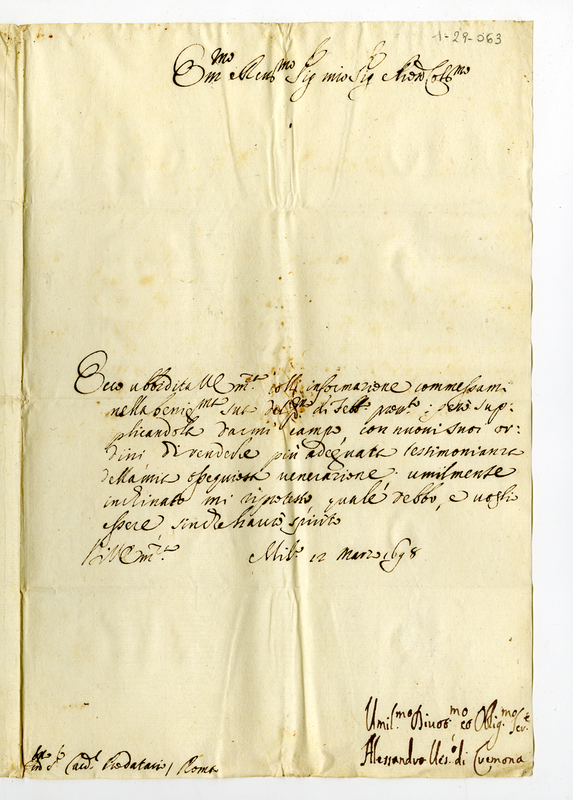 1-29-063
Em.mo e Reu.mo Sig mio Sig.r Pron Coll.mo
Ecco ubbidita V Em.za colla informazione commessami
nella benig.ma sua del di Febb.o ; però sup=
plicandola darmi campo con nuovi suoi or=
dini di renderle più adequata testimonianza
della mia ossequiosa venerazione: umilmente
inchinato mi riprotesto quale debbo, e voglio
essere sinche havrò spirito
Di V Em.za Mil.o 12 Marzo 1698
Umil.mo Diuot.mo ed Oblig.mo Ser.e
Alessandro Ves.o di Cremona
Em S.r Card.l Prodatario / Roma